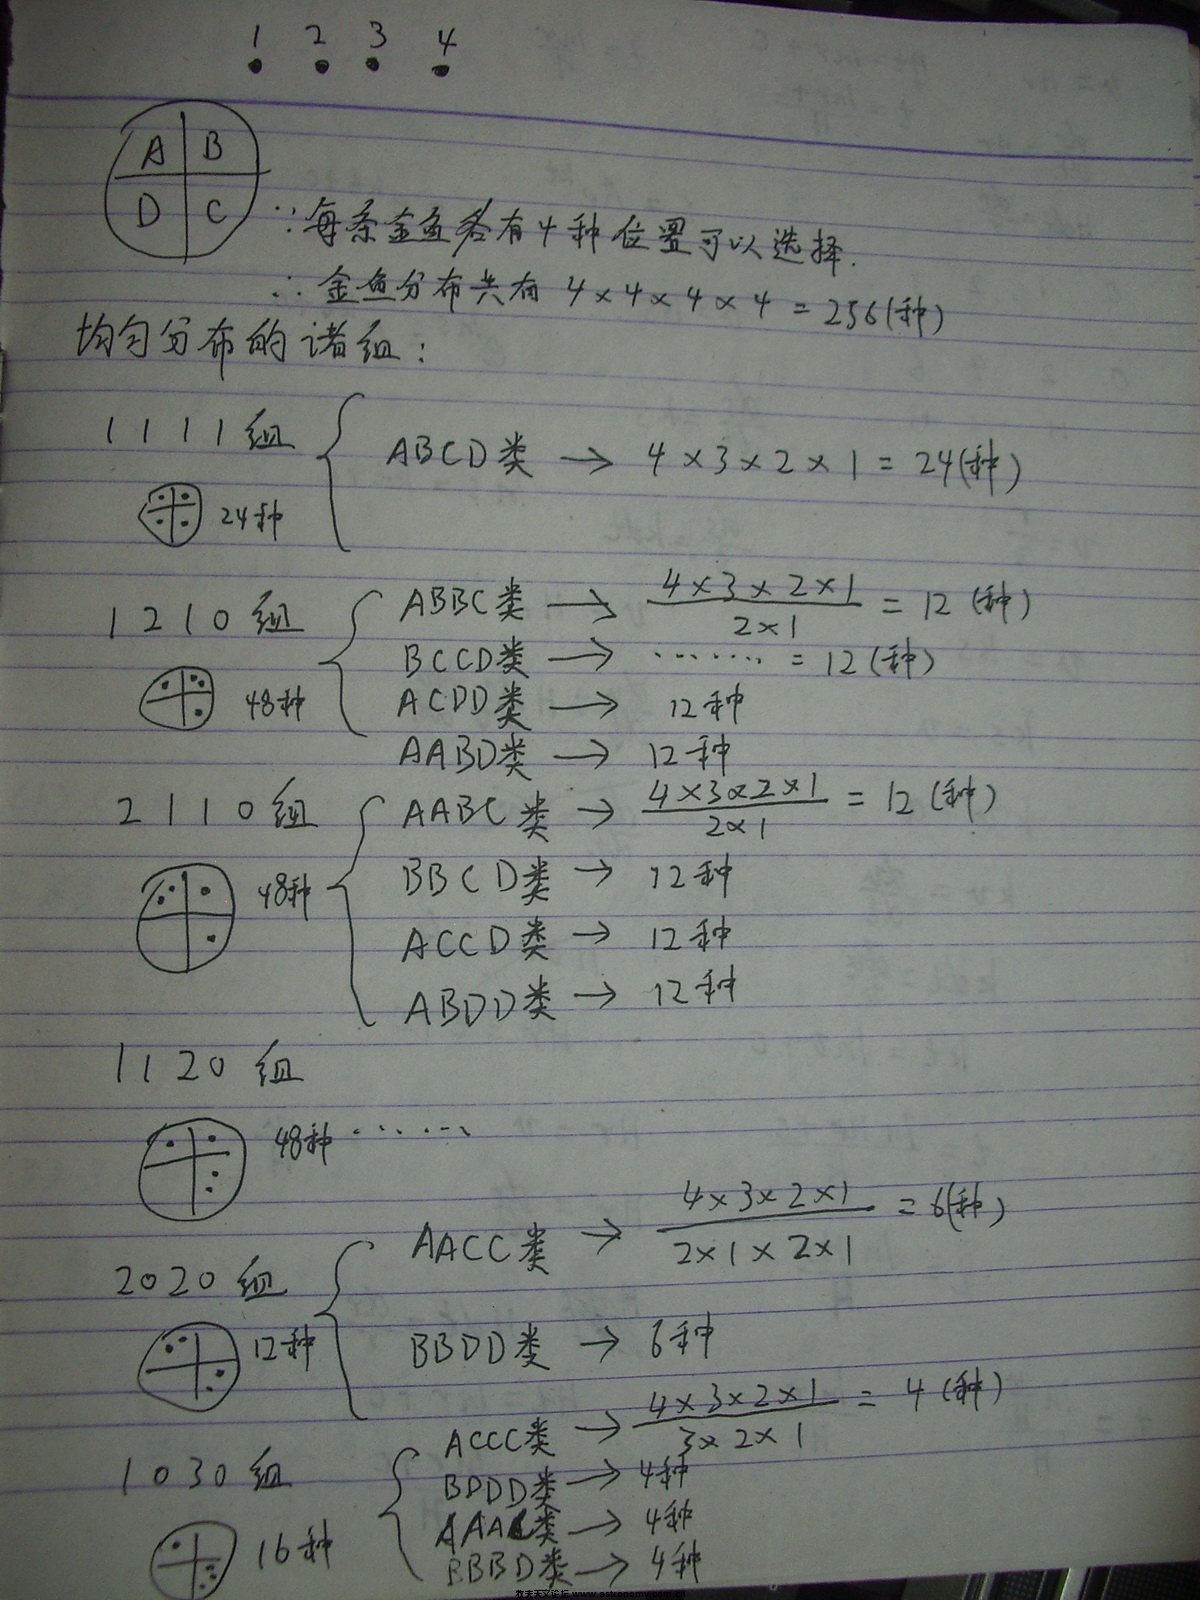 1 2 3 4
A B
D C
∵每条金鱼各有4种位置可以选择.
∴金鱼分布共有 4×4×4×4=256(种)
均匀分布的诸组:
1111组
ABCD类 → 4×3×2×1=24(种)
24种
1210组
ABBC类 → 4×3×2×1 / 2×1 = 12(种)
BCCD类 → ……. = 12(种)
48种
ACDD类 → 12种
AABD类 → 12种
2110组
AABC类 → 4×3×2×1 / 2×1 = 12(种)
48种
BBCD类 → 12种
ACCD类 → 12种
ABDD类 → 12种
1120组
48种 ……
2020组
AACC类 → 4×3×2×1 / 2×1×2×1 = 6(种)
12种
BBDD类 → 6种
1030组
ACCC类 → 4×3×2×1 / 3×2×1 = 4(种)
BDDD类 → 4种
16种
AAAC类 → 4种
BBBD类 → 4种
牧夫天文论坛 www.astronomy.com.cn